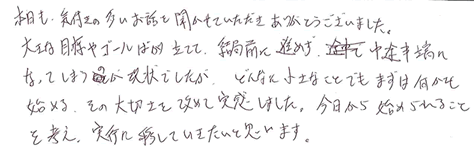 本日も、気付きの多いお話を聞かせていただきありがとうございました。
大きな目標やゴールばかり立てて、結局前に進めず、中途半端に
なってしまうのが現状でしたが、どんなに小さなことでもまずは何かを
始める、その大切さを改めて実感しました。今日から始められること
を考え、実行に移していきたいと思います。